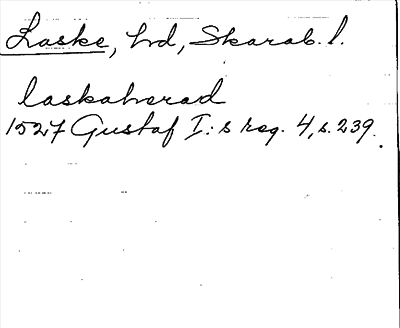 Laske, hd, Skarab. l.
laskaherad
1527 Gustaf I:s reg. 4, s. 239.